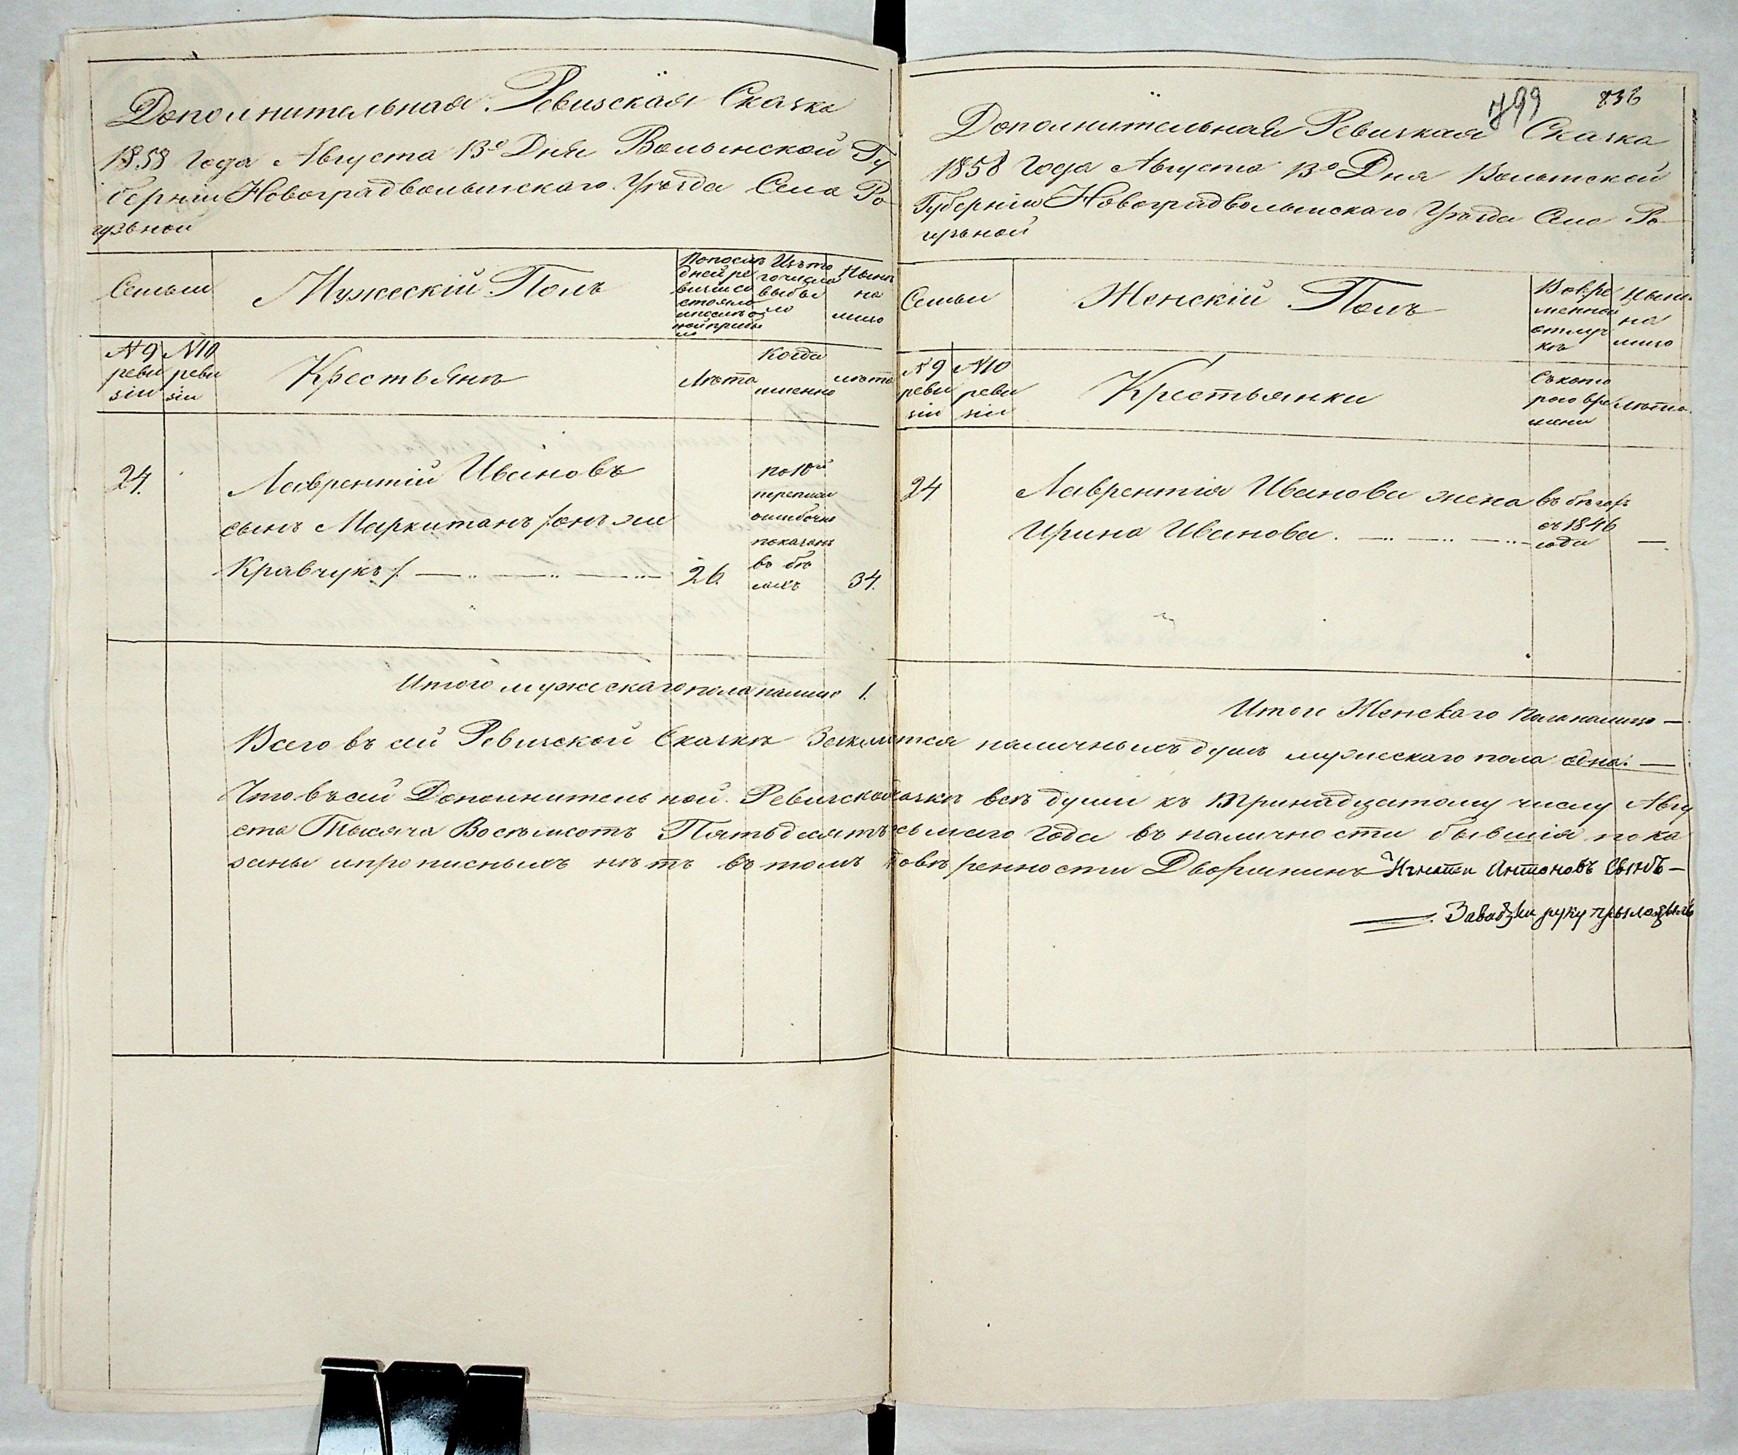 Дополнительная Ревизская Сказка
1858 Года Августа 13го Дня Волынской Гу
берніи Новоградволынскаго Уѣзда Села Ро
гузьной
Семьи
Мужескій Полъ
По послѣ
дней ре
визіи со
стояло
и послѣ о
ной прибы
ло
Изъ то
го числа
выбы
ло
Нынѣ
на
лицо
№ 9
реви
зіи
№ 10
реви
зіи
Крестьянѣ
Лѣта
Когда
именно
лѣта
24.
Лаврентій Ивановъ
сынъ Маркитанъ /онъ же
Кравчукъ/.
26.
по 10й
переписи
ошибочно
показанъ
въ бѣ
гахъ
34.
Итого мужескаго пола налицо 1.
799 836
Дополнительная Ревизкая Сказка
1858 Года Августа 13го Дня Волынской
Губерніи Новоградволынскаго Уѣзда Села Ро
гузьной
Семьи
Женскій Полъ
Во вре
менной
отлуч
кѣ
Нынѣ
на
лицо
№ 9
реви
зіи
№ 10
реви
зіи
Крестьянки
Съ кото
раго вре
мени
лѣта.
24
Лаврентія Иванова жена
Ирина Иванова.
въ бѣгахъ
съ 1846
года
—
Итого Женскаго пола налицо —
Всего въ сій Ревизской Сказкѣ наличныхъ душъ мужескаго пола одна. —
Что въ сій Дополнительной Ревизской Сказкѣ всѣ души къ Тринадцатому числу Авгу
ста Тысяча Восемьсотъ Пятьдесятъ осьмаго Года въ наличности бывшія пока
заны и прописныхъ нѣтъ въ томъ по довѣренности Дворянинъ Игнатій Антоновъ Сынъ —
Завадзки руку